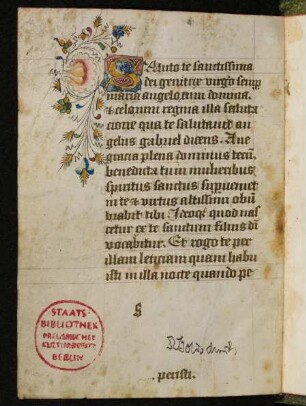 Saluto te sanctissima
dei genitrix virgo semp
maria angelorum domina.
& celorum regina illa saluta
cione qua te salutauit an
gelus gabriel dicens. Aue
gracia plena dominus tecu.
benedicta tu in mulieribus
spiritus sanctus supueniet
in te & virtus altissimi obu
brabit tibi. Ideoqz quod nas
cetur ex te sanctum filius di
vocabitur. Et rogo te per
illam leticiam quam habu
isti in illa nocte quando pe
STAATS-
BIBLIOTHEK
PREUSSISCHER
KULTURBESITZ
BERLIN
peristi.